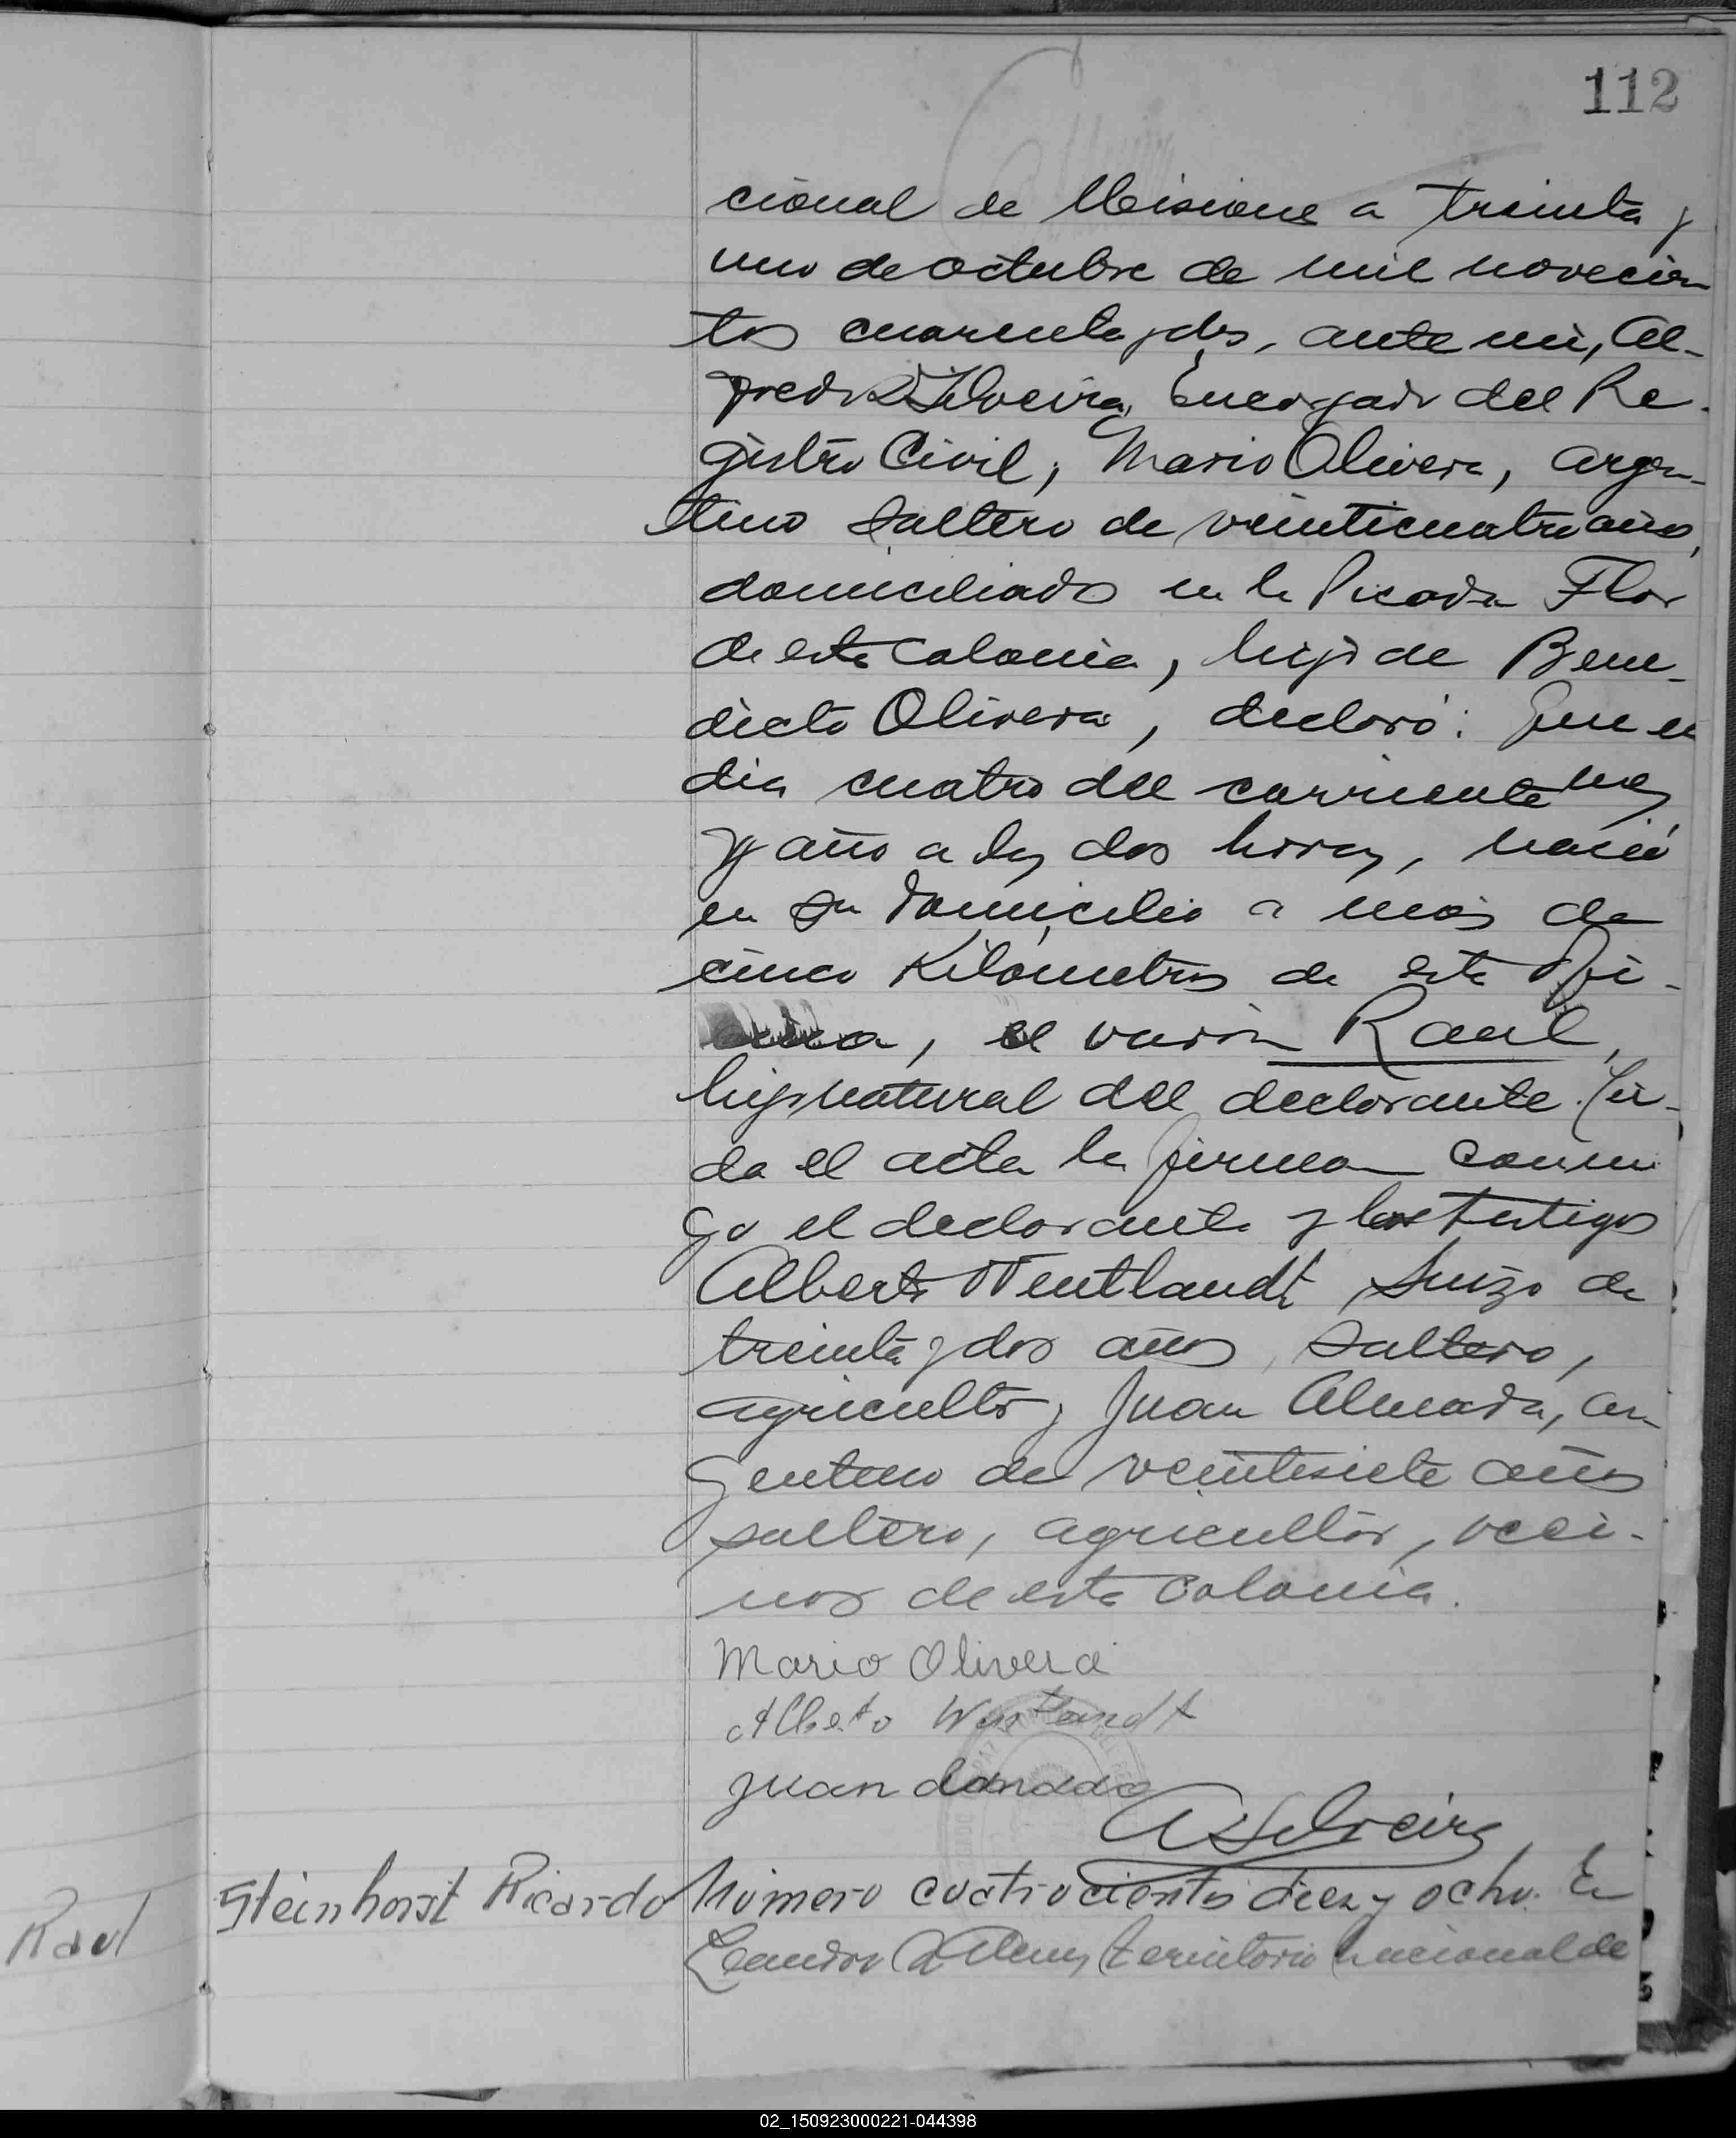 112
cional de Misiones a treinta y
uno de octubre de mil novecien
tos cuarenta y dos, ante mi, Al-
fredo Silveira, Encargado del Re-
gistro Civil, Mario Olivera, argen-
tino soltero de veinticuatro años,
domiciliado en la Picada Flor
de esta colonia, hijo de Bene-
dicto Olivera, declaró: Que el
dia cuatro del corriente mes
y año a las dos horas, nació
en su domicilio a más de
cinco Kilómetros de esta Ofi-
cina, el varón Raul,
hijo natural del declarante. Leí-
da el acta la firman conmi
go el declarante y los testigos
Alberto Wentlandt, Suizo de
treinta y dos años, soltero,
agricultor y Juan Almada, ar-
gentino de veintisiete años
soltero, agricultor, veci-
nos de esta colonia.
Mario Olivera
Alberto Wentlandt
Juan
ASilveira
Raul
Steinhorst Ricardo
Número cuatrocientos diez y ocho. En
Leandro N Alem, territorio nacional de
02_150923000221-044398